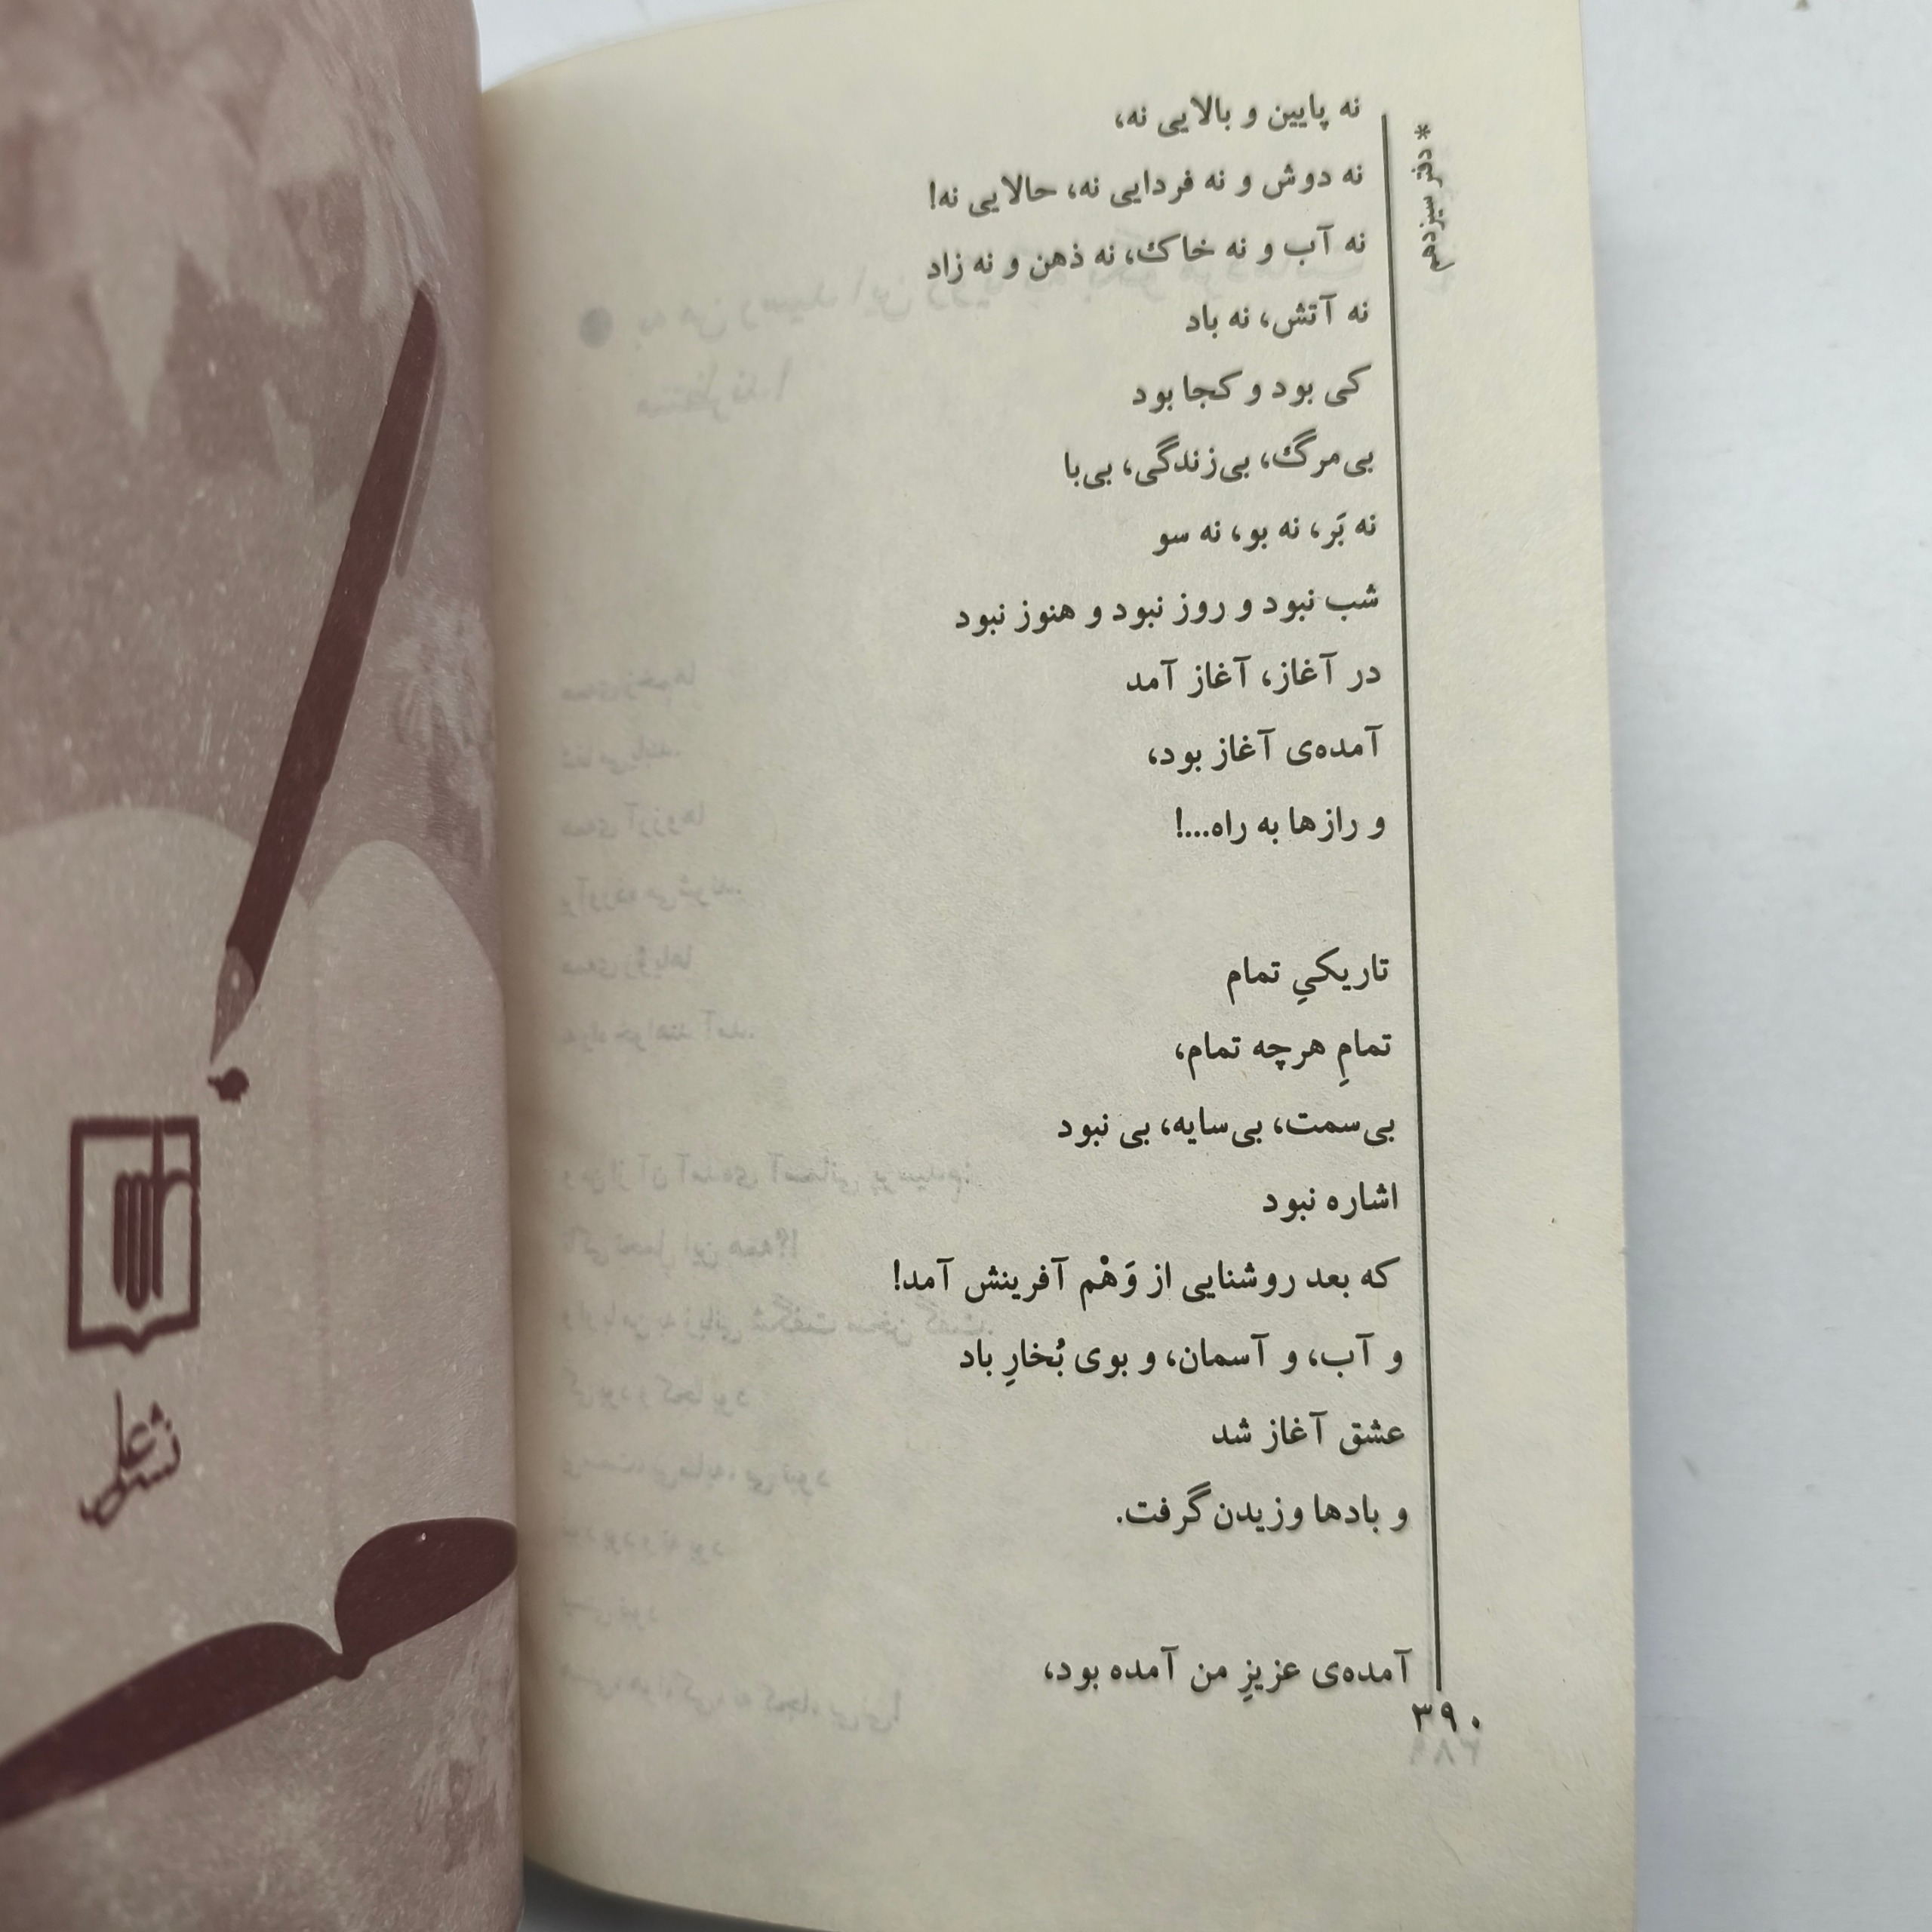 * دفتر سیزدهم
نه پایین و بالایی نه،
نه دوش و نه فردایی نه، حالایی نه!
نه آب و نه خاک، نه ذهن و نه زاد
نه آتش، نه باد
کی بود و کجا بود
بی‌مرگ، بی‌زندگی، بی‌با
نه بَر، نه بو، نه سو
شب نبود و روز نبود و هنوز نبود
در آغاز، آغاز آمد
آمده‌ی آغاز بود،
و رازها به راه...!
تاریکیِ تمام
تمامِ هرچه تمام،
بی‌سمت، بی‌سایه، بی نبود
اشاره نبود
که بعد روشنایی از وَهْم آفرینش آمد!
و آب، و آسمان، و بوی بُخارِ باد
عشق آغاز شد
و بادها وزیدن گرفت.
آمده‌ی عزیزِ من آمده بود،
۳۹۰
نشر علم